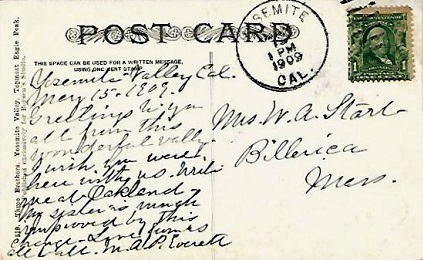 POST CARD
THIS SPACE CAN BE USED FOR A WRITTEN MESSAGE,
USING ONE CENT STAMP.
YOSEMITE
PM
1909
CAL.
1
Three Brothers, Yosemite Valley, Topmost Eagle Peak.
Yosemite Valley Cal.
May 15-1909.
Greetings to you
all from this
wonderful valley
wish you were
here with us. write
me at Oakland
My sister is much
improved by this
change - Love from us
all M.A.P. Everett
Mrs. W. A. Stark
Billerica
Mass.